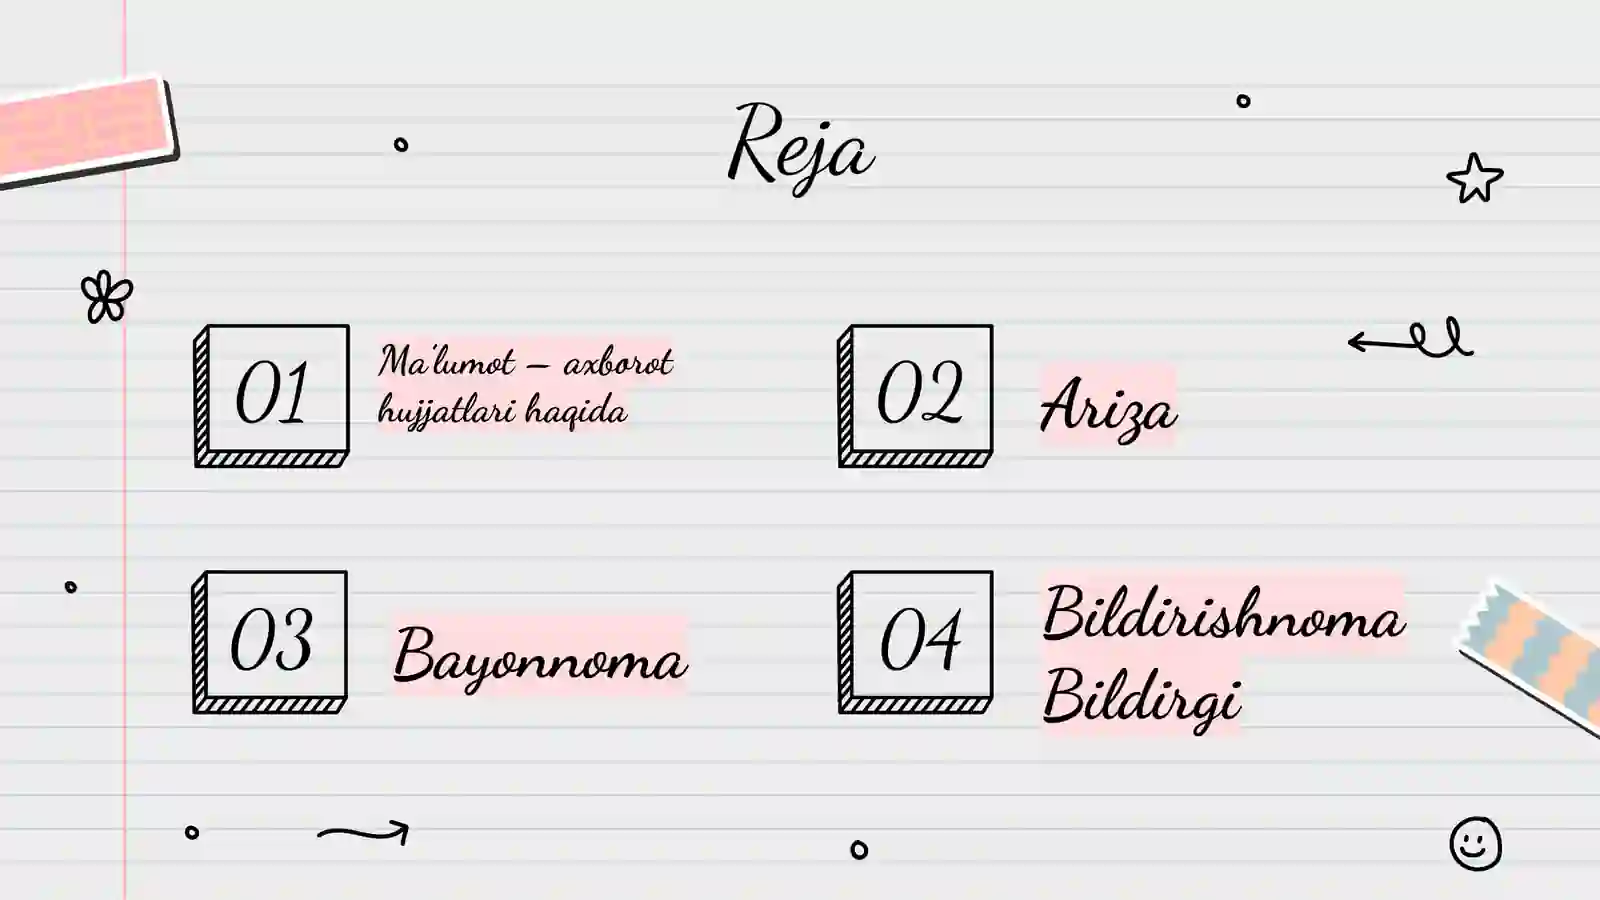 Reja
01
Ma'lumot – axborot
hujjatlari haqida
02
Ariza
03
Bayonnoma
04
Bildirishnoma
Bildirgi